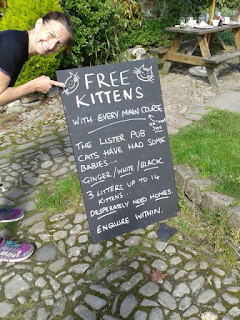 FREE
KITTENS
WITH EVERY MAIN COURSE
THE LISTER PUB
CATS HAVE HAD SOME
BABIES...
GINGER/WHITE/BLACK
3 LITTERS, UP TO 14
KITTENS...
DESPERATELY NEED HOMES.
ENQUIRE WITHIN.